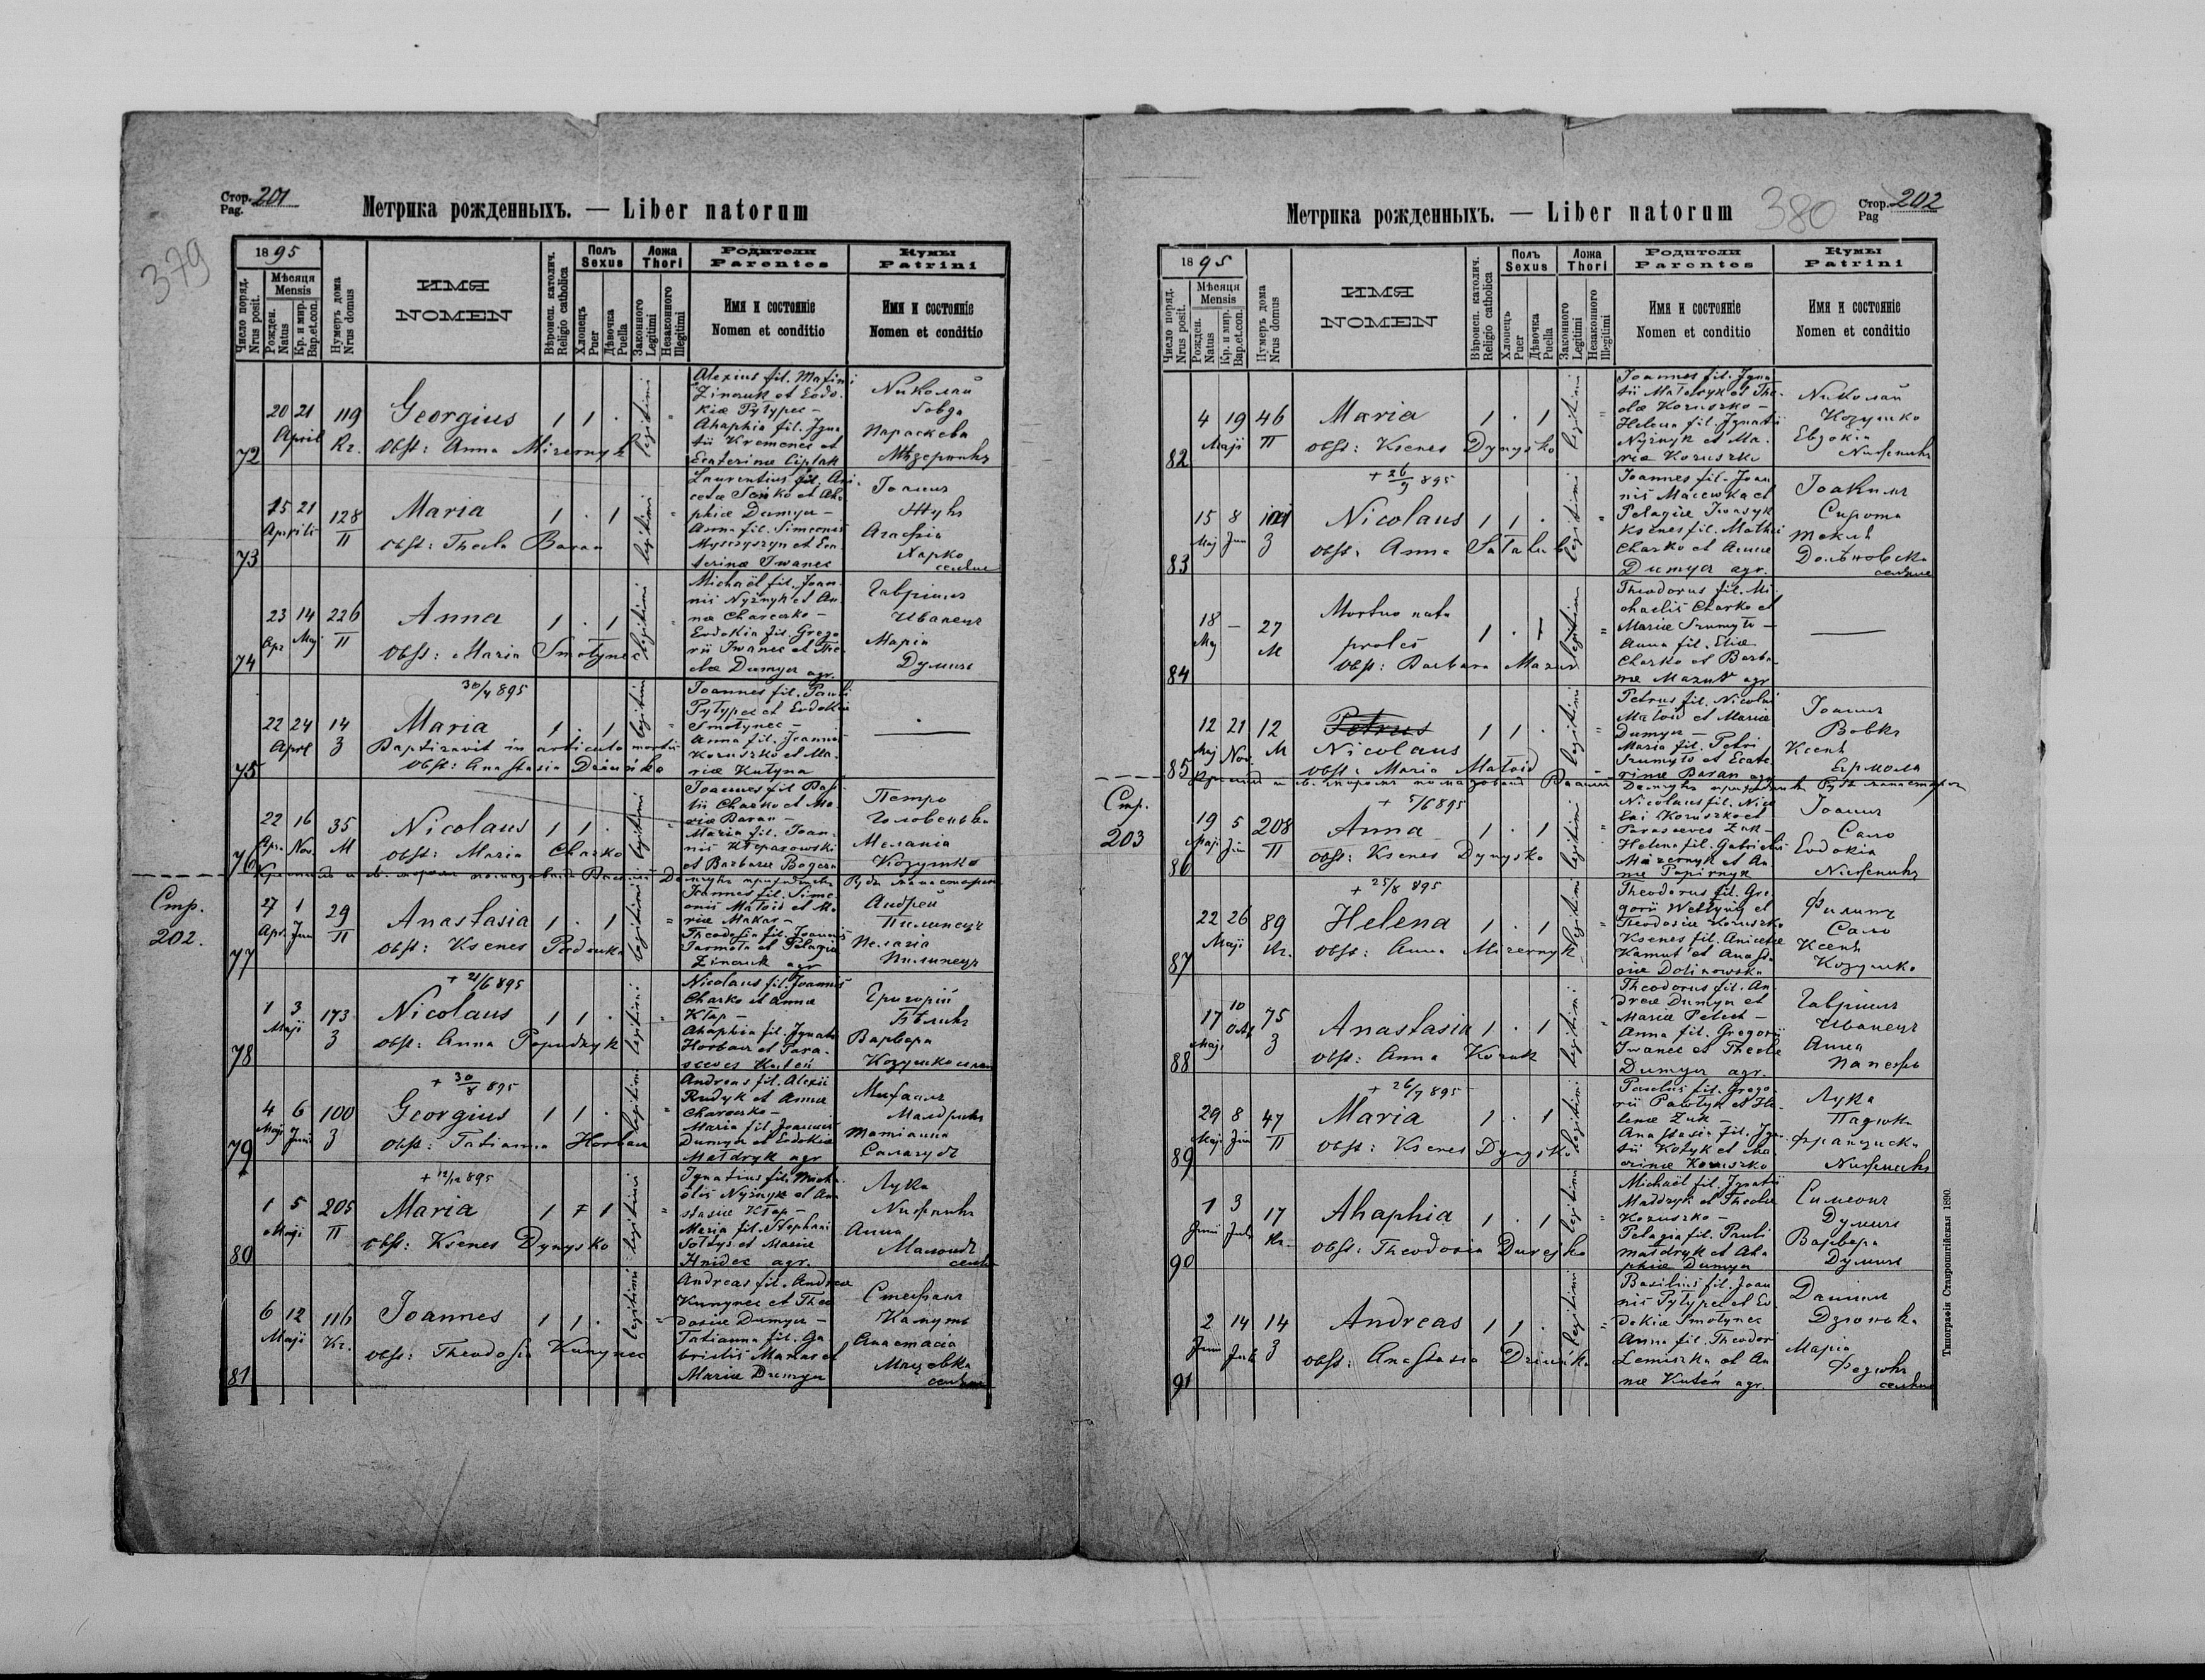 Стор. 201
Pag.
Метрика рожденныхъ. — Liber natorum
379
1895
Мѣсяця
Mensis
Число поряд.
Nrus posit.
Рожден.
Natus
Кр. и мир.
Bap.et.con.
Нумеръ дома
Nrus domus
ИМЯ
NOMEN
Вѣроисп. католич.
Religio catholica
Полъ
Sexus
Хлопецъ
Puer
Дѣвочка
Puella
Ложа
Thori
Законного
Legitimi
Незаконного
Illegitimi
Родители
Parentes
Имя и состояніе
Nomen et conditio
Кумы
Patrini
Имя и состояніе
Nomen et conditio
72
20 21
April
119
Kr.
Georgius
obst: Anna Mizernyk
1 1 .
legitimi
Alexius fil. Maximi
Zinczuk et Evdo-
kiæ Pytypec –
Ahaphia fil. Igna
tii Kremenec et
Ecaterinæ Ciplak
Николай
Говда
Параскева
Мѣзерникъ
73
15 21
Aprilis
128
II
Maria
obst: Thecla Baran
1 . 1
legitimi
Laurentius fil. Ani-
cetæ Senko et Aha
phiæ Dumycz –
Anna fil. Simeonis
Myszczyszyn et Eca
terinæ Iwanec
Іоаннъ
Жукъ
Агафія
Нарко
74
23 14
Apr Maj
226
II
Anna
obst: Maria Smotynec
1 . 1
legitimi
Michaël fil. Joan-
nis Nyżnyk et An
næ Charczko –
Evdokia fil. Grego
rii Iwanec et The
clæ Dumycz agr.
Гавріилъ
Иванецъ
Марія
Думичъ
75
30/4 895
22 24
Aprl
14
3
Maria
Baptizavit in articulo mortis
obst: Anastasia Dziuńka
1 . 1
legitimi
Joannes fil. Pauli
Pytypec et Evdokiæ
Smotynec –
Anna fil. Joannis
Kozuszko et Ma-
riæ Kutyna
76
22 16
Apr. Nov.
35
M
Nicolaus
obst: Maria Charko
1 1 .
legitimi
Joannes fil Basi
lii Charko et Ma
riæ Baran –
Maria fil. Joan-
nis Szczparowski
et Barbaræ Bogera
Петро
Головенька
Меланія
Козушко
Стр.
202.
77
27 1
Apr. Jun
29
II
Anastasia
obst: Ksenes Padiuka
1 . 1
legitimi
Joannes fil. Sime
onis Matoid et Ma
riæ Makar –
Theodosia fil. Joannis
Jarmota et Pelagiæ
Zinczuk agr
Андрей
Пилипецъ
Пелагія
Пилипецъ
78
+ 21/6 895
1 3
Maji
173
3
Nicolaus
obst: Anna Popudnyk
1 1 .
legitimi
Nicolaus fil. Joannis
Charko et Annæ
Kłap –
Ahaphia fil. Ignatii
Horbacz et Para-
sceves Kuteń
Григорій
Бѣликъ
Варвара
Козушко
79
+ 30/8 895
4 6
Maji Junii
100
3
Georgius
obst: Tatianna Horbacz
1 1 .
legitimi
Andreas fil. Alexii
Rudyk et Annæ
Charczko –
Maria fil. Joannis
Dumycz et Evdokiæ
Matdryk agr
Михаилъ
Малдрикъ
Татіанна
80
+ 12/12 895
1 5
Maji
205
II
Maria
obst: Ksenes Dynysko
1 . 1
legitimi
Ignatius fil. Mich-
aëlis Nyżnyk et Ana
stasiæ Kłap –
Maria fil. Stephani
Sołtys et Mariæ
Hnidec agr.
Лука
Анна
Малоидъ
81
6 12
Maji
116
Kr.
Joannes
obst: Theodosia Kunynec
1 1 .
legitimi
Andreas fil. Andreæ
Kunynec et Theo
dosiæ Dumycz –
Tatianna fil. Ga
brielis Mazur et
Mariæ Dumycz
Стефанъ
Капуть
Анастасія
Мацѣвка
Метрика рожденныхъ. — Liber natorum
380
Стор. 202
Pag
1895
Мѣсяця
Mensis
Число поряд.
Nrus posit.
Рожден.
Natus
Кр. и мир.
Bap.et.con.
Нумеръ дома
Nrus domus
ИМЯ
NOMEN
Вѣроисп. католич.
Religio catholica
Полъ
Sexus
Хлопецъ
Puer
Дѣвочка
Puella
Ложа
Thori
Законного
Legitimi
Незаконного
Illegitimi
Родители
Parentes
Имя и состояніе
Nomen et conditio
Кумы
Patrini
Имя и состояніе
Nomen et conditio
82
4 19
Maji
46
II
Maria
obst: Ksenes Dynysko
1 . 1
legitimi
Joannes fil. Igna
tii Matdryk et The-
clæ Kozuszko –
Helena fil. Ignatii
Nyżnyk et Ma-
riæ Kozuszko
Николай
Козушко
Евдокія
83
+ 26/9 895
15 8
Maj Jun
3
Nicolaus
obst: Anna Sałahub
1 1 .
legitimi
Joannes fil. Joan
nis Macewka et
Pelagiæ Iwasyk
Ksenes fil. Mathei
Charko et Annæ
Dumycz agr.
Іоакимъ
Сирота
Текля
Долѣновска
84
18 –
Maj
27
M
Mortuo nata
proles
obst: Barbara Mazur
1 . 1
legitimi
Theodorus fil. Mi-
chaelis Charko et
Mariæ Szumyło –
Anna fil. Eliæ
Charko et Barba-
ræ Mazur agr
85
12 21
Maj Nov.
12
M
Petrus
Nicolaus
obst: Maria Matoid
1 1 .
legitimi
Petrus fil. Nicolai
Matoid et Mariæ
Dumycz –
Maria fil. Petri
Szumyło et Ecate
rinæ Baran agr
Іоаннъ
Вовкъ
Ксеня
Ермола
Стр.
203
86
+ 5/6 895
19 5
Maji Jun
208
II
Anna
obst: Ksenes Dynysko
1 . 1
legitimi
Nicolaus fil. Nico
lai Kozuszko et
Parasceves Żuk –
Helena fil. Gabrielis
Mizernyk et An
næ Papirnyk
Іоаннъ
Сало
Evdokia
87
+ 25/8 895
22 26
Maji
89
Kr.
Helena
obst: Anna Mizernyk
1 . 1
legitimi
Theodorus fil. Gre
gorii Wetłyny et
Theodosiæ Kozuszko
Ksenes fil. Anicetæ
Kamut et Anasta
siæ Dolinowska
Филипъ
Сало
Ксеня
Козушко
88
17 10
Maji Oct
75
3
Anastasia
obst: Anna Kozak
1 . 1
legitimi
Theodorus fil. An
dreæ Dumycz et
Mariæ Petech –
Anna fil. Gregorii
Iwanec et Theclæ
Dumycz agr.
Гавріилъ
Иванецъ
Анна
89
+ 26/7 895
29 8
Maji Jun
47
II
Maria
obst: Ksenes Dynysko
1 . 1
legitimi
Paulus fil. Grego-
rii Pawłyk et He
lenæ Żuk –
Anastasia fil. Igna-
tii Kotyk et Ma-
rinæ Kozuszko
Лука
Падюка
Франциска
90
1 3
Junii Juli
17
Kr.
Ahaphia
obst: Theodosia Durejko
1 . 1
legitimi
Michaël fil. Ignatii
Matdryk et Theclæ
Kozuszko –
Pelagia fil. Pauli
Matdryk et Aha
phiæ Dumycz
Симеонъ
Думичъ
Варвара
Думичъ
91
2 14
Junii Juli
14
3
Andreas
obst: Anastasia Dziuńka
1 1 .
legitimi
Basilius fil. Joan
nis Pytypec et Ev
dokiæ Smotynec
Anna fil. Theodori
Lemiszka et An
næ Kuteń agr.
Даніилъ
Дзюнька
Марія
Федюкъ
Типографія Ставропигійская 1890.